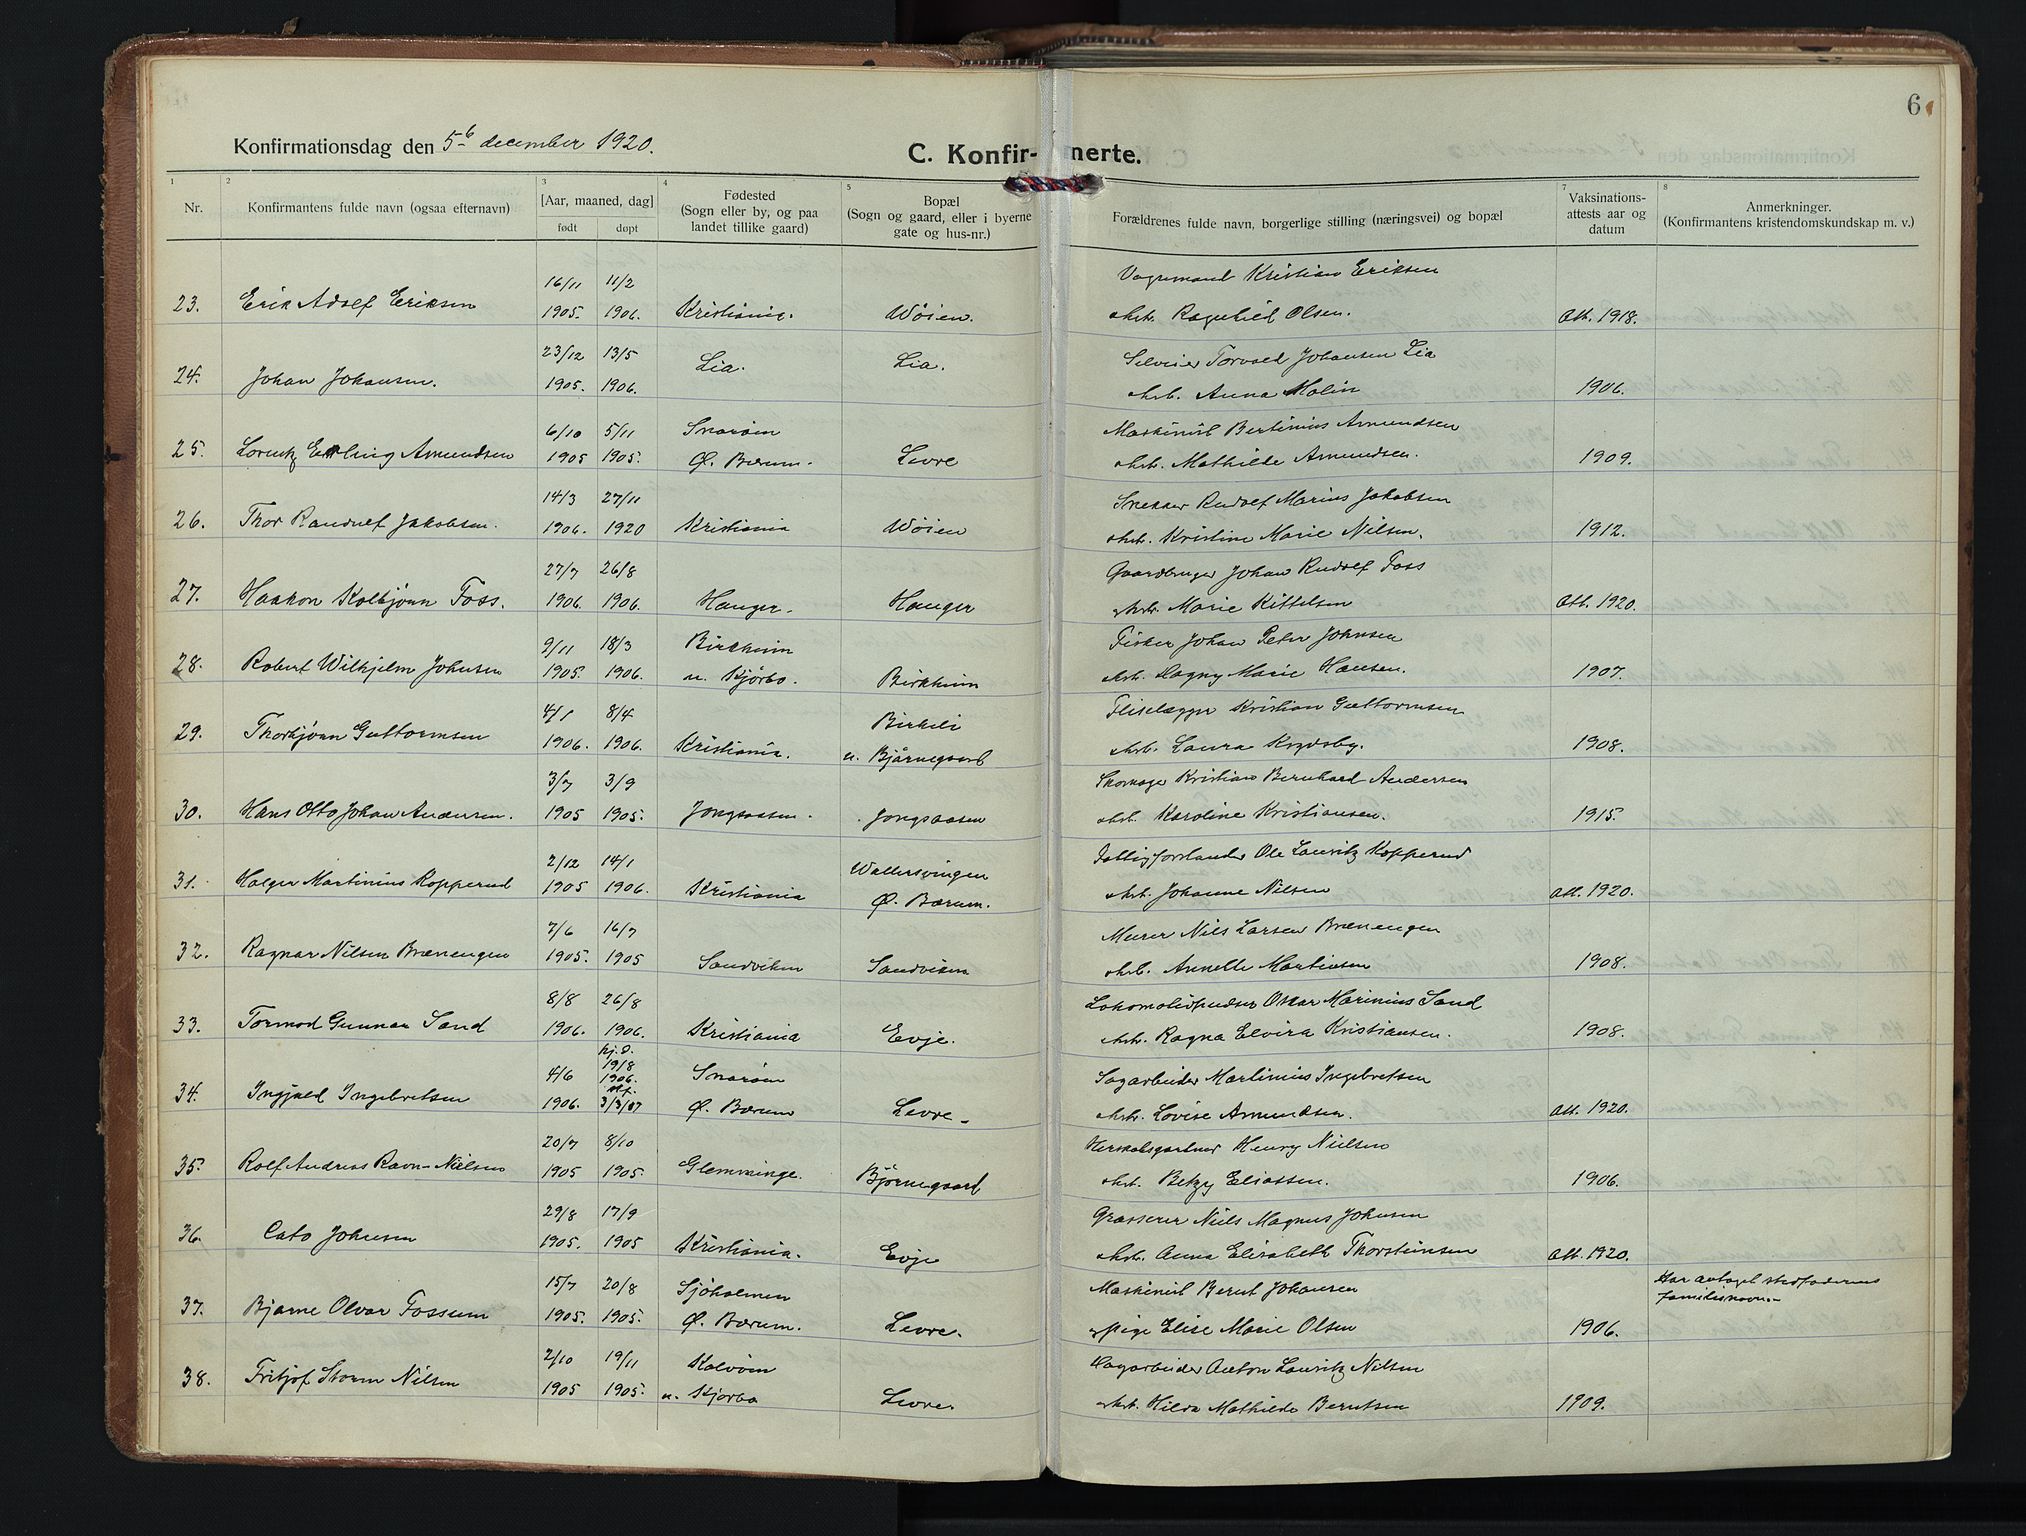 6
Konfirmationsdag den 5te december 1920.
C. Konfir- merte.
1 2 3 4 5 7 8
Nr.
Konfirmantens fulde navn (ogsaa efternavn)
[Aar, maaned, dag]
født døpt
Fødested
(Sogn eller by, og paa
landet tillike gaard)
Bopæl
(Sogn og gaard, eller i byerne
gate og hus-nr.)
Forældrenes fulde navn, borgerlige stilling (næringsvei) og bopæl
Vaksinations-
attests aar og
datum
Anmerkninger.
(Konfirmantens kristendomskundskap m. v.)
16/11 11/2 Vognmand Kristian Eriksen
23. Erik Adolf Eriksen 1905. 1906. Kristiania. Wøien. Ragnhild Olsen. Att. 1918.
23/12 13/5 Lia. Lia. Torvald Johansen Lia
24. Johan Johansen. 1905. 1906. Anna Molin 1906.
6/10 5/11 Snarøen Maskinist Bertinius Amundsen
25. Lorentz Erling Amundsen 1905 1905. Ø. Bærum. Levre Mathilde Amundsen. 1909.
14/3 27/11 Snekker Rudolf Marius Jakobsen
26. Thor Randulf Jakobsen. 1906. 1920 Kristiania Wøien Kristine Marie Nilsen. 1912.
27/7 26/8 Gaardbruger Johan Rudolf Foss
27. Haakon Kolbjørn Foss. 1906. 1906. Hauger. Hauger Marie Kittelsen Att. 1920.
9/11 18/3 Birkheim Fisker Johan Peter Johnsen
28. Robert Wilhjelm Johnsen 1905. 1906. u. Kjørbo. Birkheim Dagny Marie Hansen. 1907.
4/1 8/4 Birkeli Fliselægger Kristian Guttormsen
29. Thorbjørn Guttormsen 1906. 1906. Kristiania. u. Bjørnegaard Laura 1908.
3/7 3/9 Skomager Kristian Bernhard Andersen
30. Hans Otto Johan Andersen. 1905 1905. Jongsaasen. Jongsaasen Karoline Kristiansen. 1915.
2/12 14/1 Wallersvingen Fattigforstander Ole Lauritz Kopperud
31. Holger Martinius Kopperud 1905 1906. Kristiania Ø. Bærum. Johanne Nilsen Att. 1920.
7/6 16/7 Murer Niels Larsen Brænengen
32. Ragnar Nilsen Brænengen 1905. 1905 Sandviken Sandviken Annette Martinsen 1908.
8/8 26/8 Lokomotivpudser Oskar Marinius Sand
33. Tormod Gunnar Sand 1906. 1906. Kristiania Evje. Ragna Elvira Kristiansen. 1908.
hj. d.
19/8
4/6 1906. Snarøen Sagarbeider Martinius Ingebretsen
34. Ingjald Ingebretsen 1906. 3/3/07 Ø. Bærum Levre. Lovise Amundsen. Att. 1920.
20/7 8/10 Henry Nielsen
35. Rolf Andreas Ravn-Nielsen 1905 1905. Glemminge. Bjørnegaard Betzy Eliassen. 1906.
29/8 17/9 Grosserer Niels Magnus Johnsen
36. Cato Johnsen 1905. 1905 Kristiania. Evje Anna Elisabeth Thorsteinsen Att. 1920.
15/7 20/8 Sjøholmen Maskinist Bernt Johansen Har antaget stedfaderens
familienavn.
37. Bjarne Olvar Fossum 1905. 1905. Ø. Bærum. Levre. pige Elise Marie Olsen 1906.
2/10 19/11 Kalvøen Dagarbeider Anton Lauritz Nilsen
38. Fritjof Storm Nilsen 1905 1905. u. Kjørbo Levre. Hilda Mathilde Berntsen 1909.